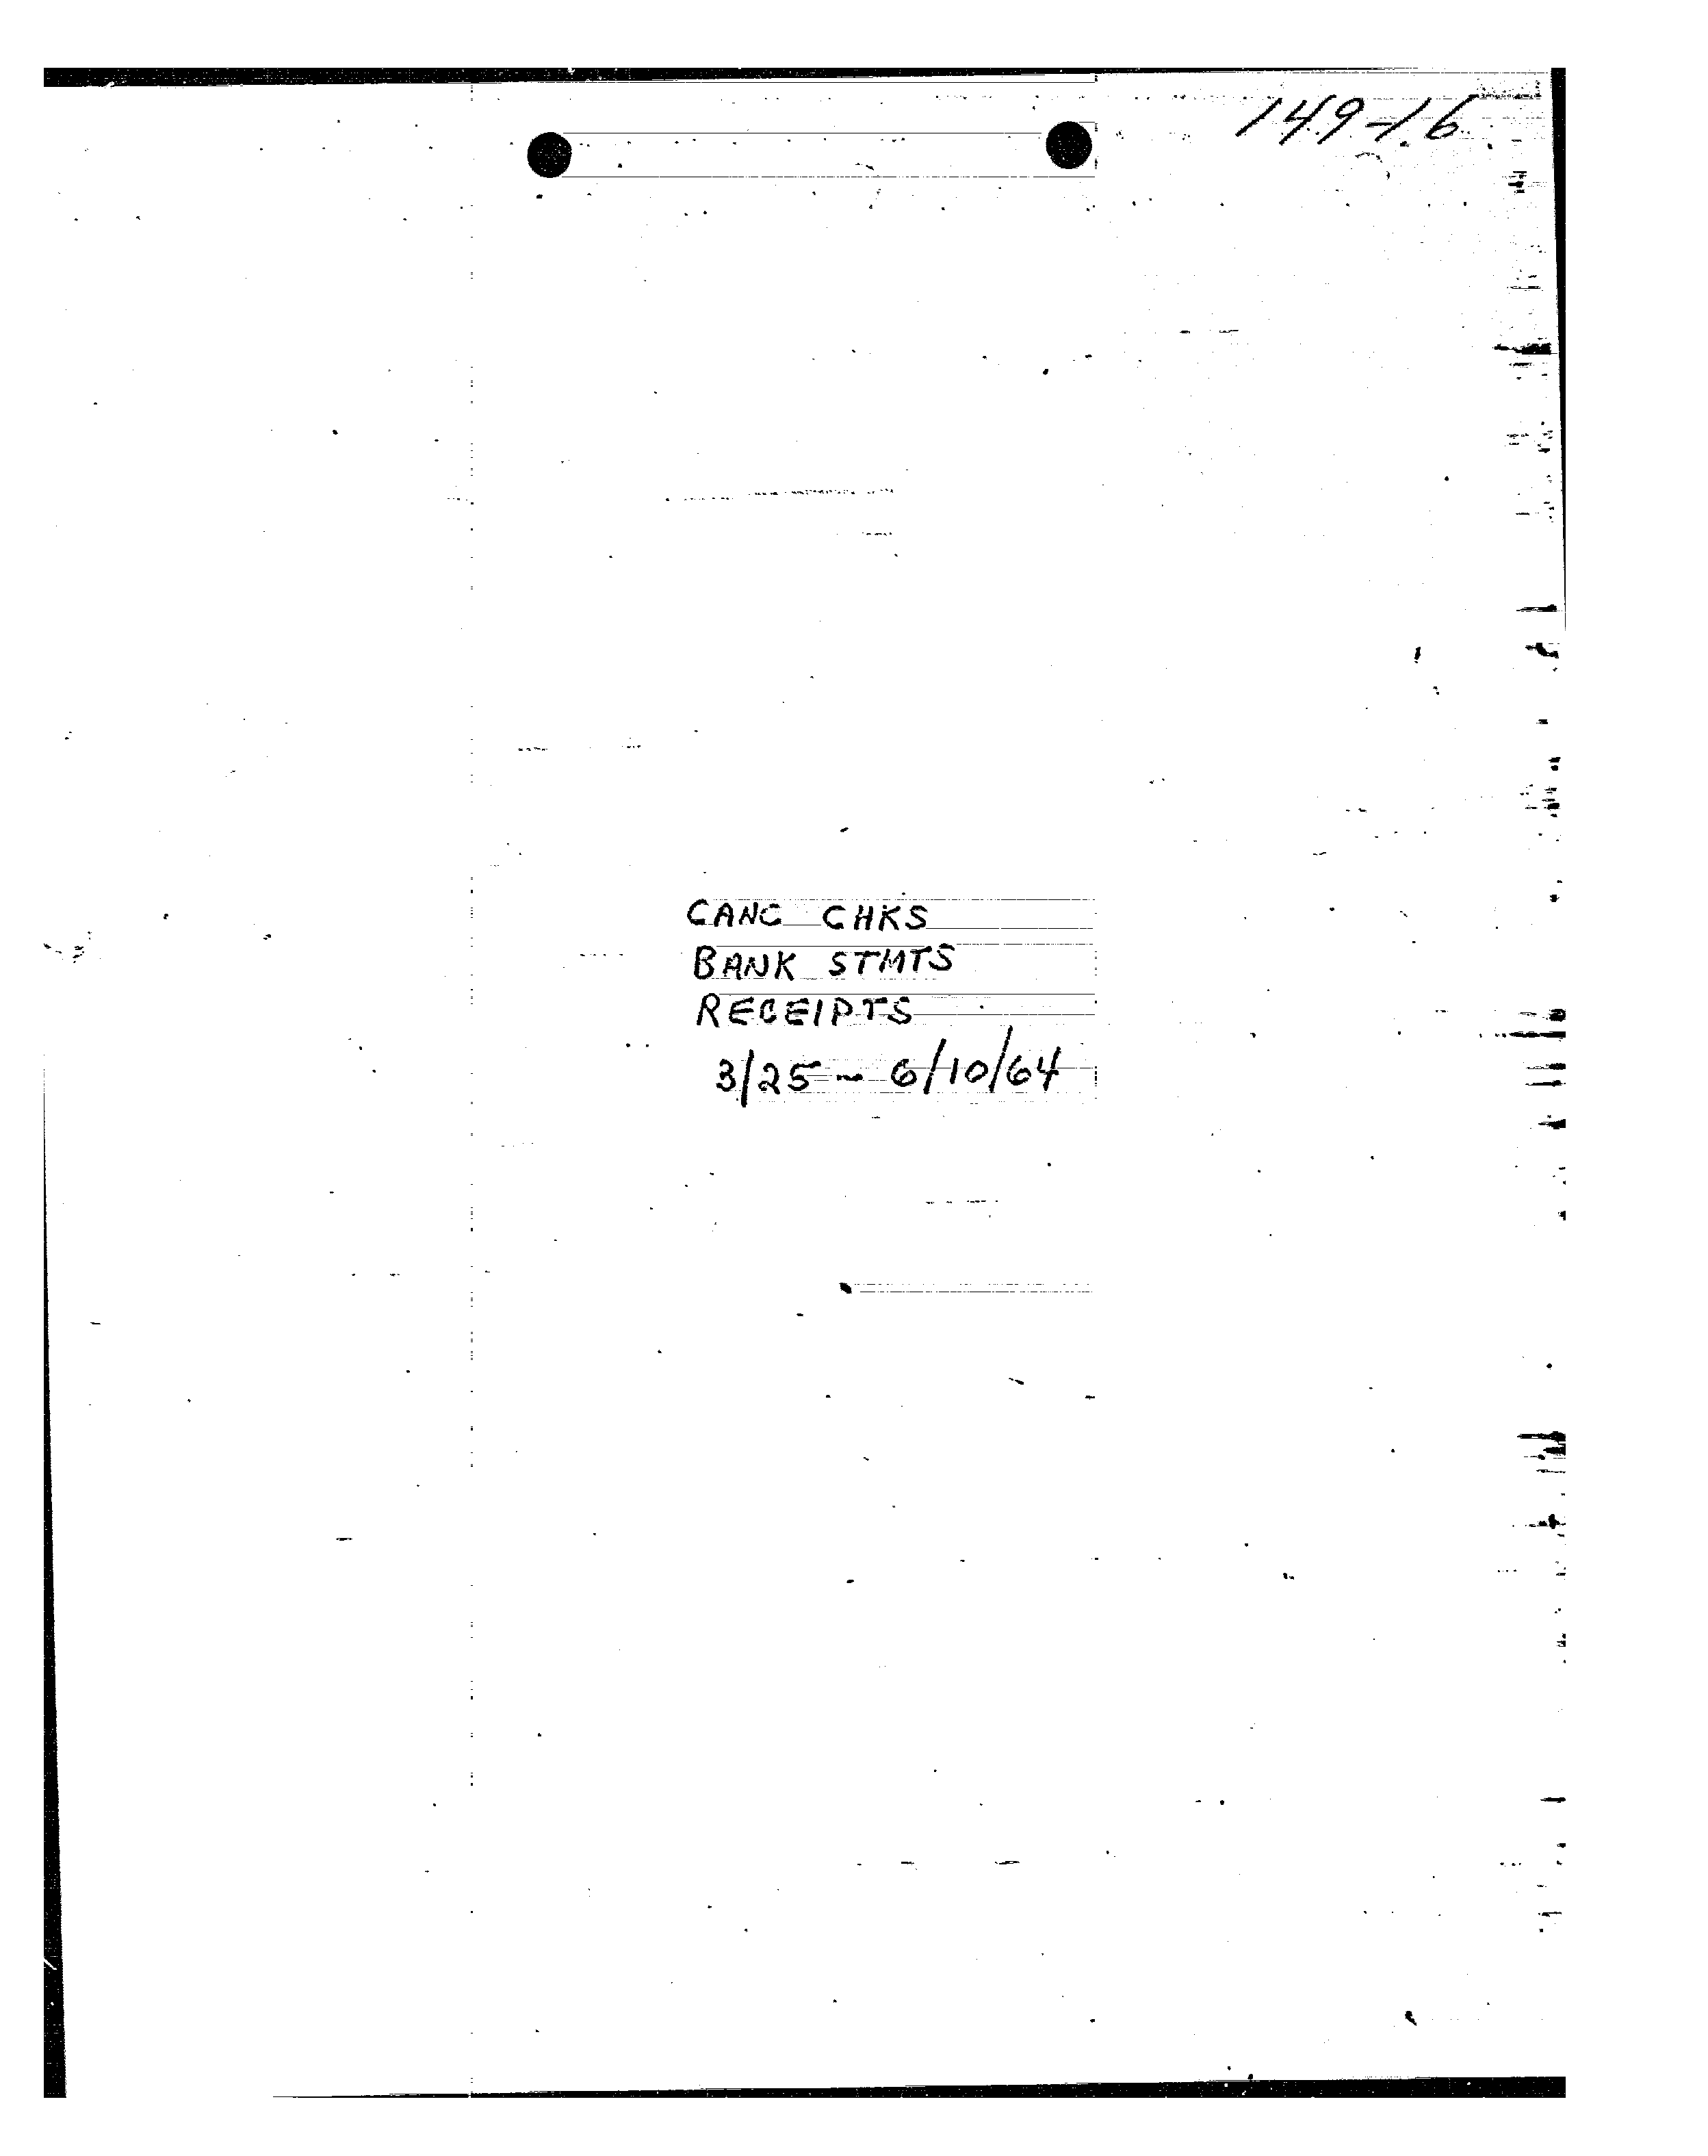 149-16
CANC CHKS
BANK STMTS
RECEIPTS
3/25 - 6/10/64